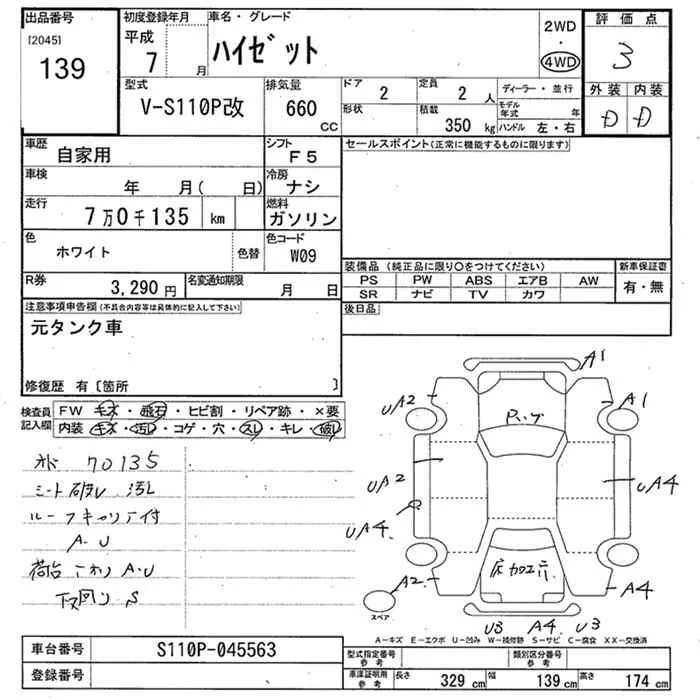 出品番号
[2045]
139
初度登録年月
平成
7 月
車名・グレード
ハイゼット
2WD
・
4WD
評価点
3
外装 内装
D D
型式
V-S110P改
排気量
660
cc
ドア
2
形状
定員
2 人
積載
350 kg
ディーラー・並行
モデル年式 年
ハンドル 左・右
車歴
自家用
シフト
F5
車検
年 月( 日)
冷房
ナシ
走行
7万0千135 km
燃料
ガソリン
色
ホワイト
色替
色コード
W09
R券
3,290円
名変通知期限
月 日
セールスポイント(正常に機能するものに限ります)
装備品(純正品に限り○をつけてください)
PS PW ABS エアB AW
SR ナビ TV カワ
新車保証書
有・無
後日品
注意事項申告欄(不具合内容等は具体的に記入して下さい)
元タンク車
修復歴 有〔箇所 〕
検査員記入欄
FW キズ・飛石・ヒビ割・リペア跡・×要
内装・キズ・汚レ・コゲ・穴・スレ・キレ・破レ
70135
シート破レ 汚レ
ルーフキャリア付
A・U
荷台 A・U
下回り S
A1
UA2
A1
UA2
UA4
UA4
A2
A4
U3 A4 U3
スペア
A−キズ E−エクボ U−凹み W−補修跡 S−サビ C−腐食 XX−交換済
車台番号
S110P-045563
登録番号
型式指定番号
参考
類別区分番号
参考
車庫証明用
参考
長さ 329 cm 幅 139 cm 高さ 174 cm